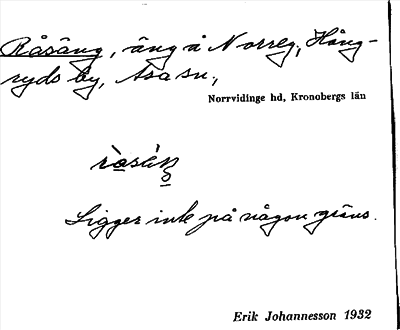 Råsäng, äng å Norreg, Hång-
ryds by, Asa sn,
Norrvidinge hd, Kronobergs län
Ligger inte på någon gräns.
Erik Johannesson 1932